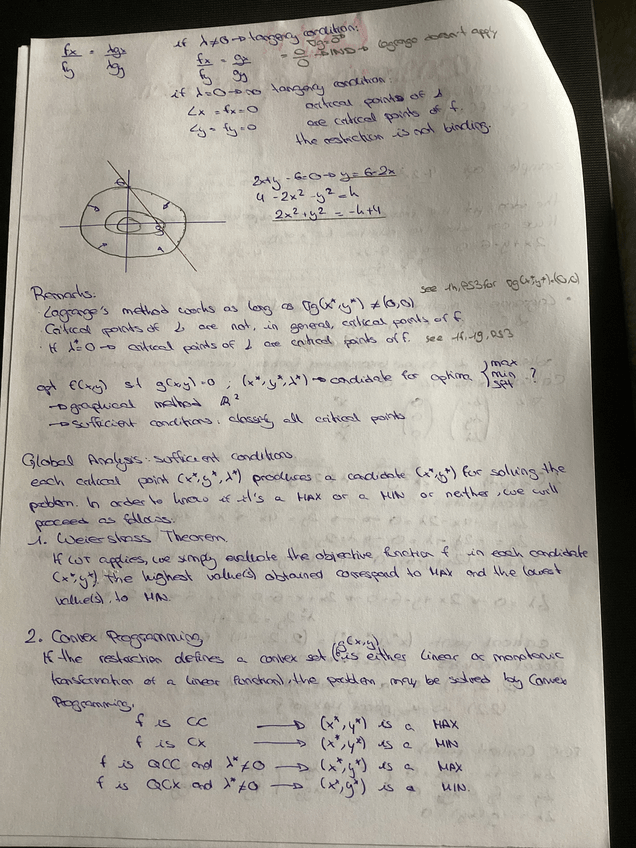 fx/fy = λgx/λgy
if λ≠0 → tangency condition:
fx/fy = gx/gy = 0/0 → IND → Lagrange doesn't apply
∇g=0
if λ=0 → no tangency condition:
Lx = fx=0 critical points of L
Ly = fy=0 are critical points of f.
the restriction is not binding.
2x+y-6=0 → y=6-2x
4-2x²-y²=h
2x²+y² = -h+4
Remarks:
see PS3 for ∇g(x*,y*)=(0,0)
· Lagrange's method works as long as ∇g(x*,y*) ≠ (0,0)
· Critical points of L are not, in general, critical points of f.
· If λ*=0 → critical points of L are critical points of f. see PS3
opt f(x,y) s.t g(x,y)=0 ; (x*,y*,λ*) → candidate for optima { max min ?
→ graphical method ℝ²
→ sufficient conditions, classify all critical points
Global Analysis: sufficient conditions.
each critical point (x*,y*,λ*) produces a candidate (x*,y*) for solving the
problem. In order to know if it's a MAX or a MIN or neither, we will
proceed as follows.
1. Weierstrass Theorem
If WT applies, we simply evaluate the objective function f in each candidate
(x*,y*), the highest value(s) obtained correspond to MAX and the lowest
value(s), to MIN.
2. Convex Programming
If the restriction defines a convex set (g(x,y) is either linear or monotonic
transformation of a linear function), the problem may be solved by Convex
Programming.
f is CC → (x*,y*) is a MAX
f is CX → (x*,y*) is a MIN
f is QCC and λ*≠0 → (x*,y*) is a MAX
f is QCX and λ*≠0 → (x*,y*) is a MIN.